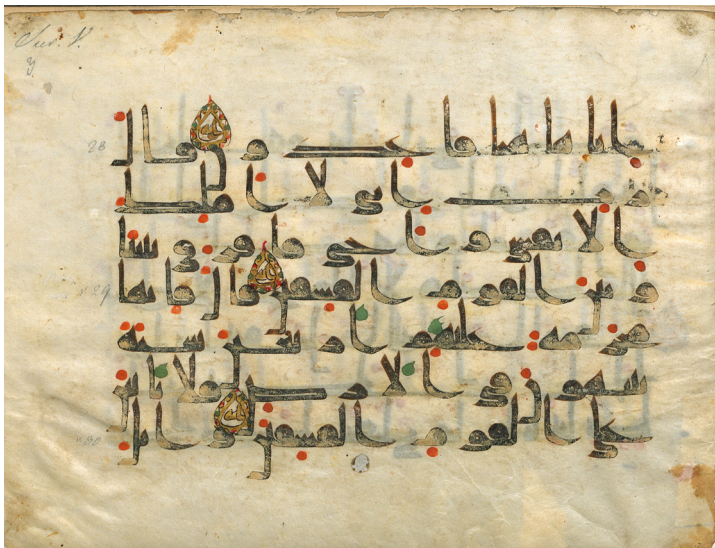 Sur. V.
انا ههنا قعدون قال
28
رب اني لا املك
الا نفسي و اخي فافرق بيننا
و بين القوم الفسقين قال فانها
29
محرمة عليهم اربعين سنة
يتيهون في الارض فلا تاس
على القوم الفسقين واتل
30